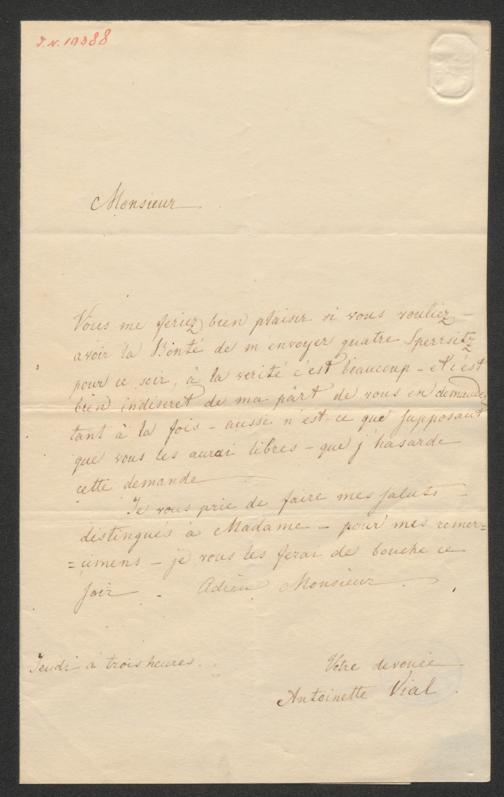 I.N. 19388
Monsieur
Vous me feriez bien plaisir si vous vouliez
avoir la Bonté de m envoyer quatre Sperrsitz
pour ce soir, à la verité c'est beaucoup - et c'est
bien indiscret de ma part de vous en demander
tant à la fois - aussi n'est-ce que supposant
que vous les aurai libres - que j'hasarde
cette demande
Je vous prie de faire mes saluts
distingués à Madame - pour mes remer=
=cimens - je vous les ferai de bouche ce
soir. Adieu Monsieur
Jeudi à trois heures.
Votre devouée
Antoinette Vial.